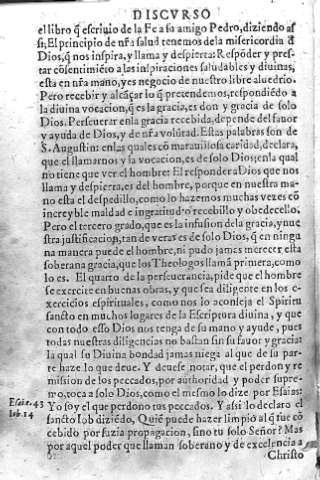 DISCVRSO
el libro q̃ escriuio de la Fe a su amigo Pedro, diziendo as
si, El principio de nr̃a salud tenemos de la misericordia d̃
Dios, q̃ nos inspira, y llama y despierta: Respõder y pres-
tar cõsentimiẽto a las inspiraciones saludables y diuinas,
esta en nr̃a mano, y es negocio de nuestro libre aluedrio.
Pero recebir y alcãçar lo q̃ pretendemos, respondiẽdo a
la diuina vocacion, q̃ es la gracia, es don y gracia de solo
Dios. Perseuerar en la gracia recebida, depende del fauor
y ayuda de Dios, y de nr̃a volũtad. Estas palabras son de
S. Augustin: en las quales cõ marauillosa caridad, declara,
que el llamarnos y la vocacion, es de solo Dios; en la qual
no tiene que ver el hombre: El responder a Dios que nos
llama y despierta, es del hombre, porque en nuestra ma-
no esta el despedillo, como lo hazemos muchas vezes cõ
increyble maldad e ingratitud: o recebillo y obedecello.
Pero el tercero grado, que es la infusion de la gracia, y nue
stra justificacion, tan de veras es de solo Dios, q̃ en ningu
na manera puede el hombre, ni pudo jamas merecer esta
soberana gracia, que los Theologos llamã primera, como
lo es. El quarto de la perseuerancia, pide que el hombre
se exercite en buenas obras, y que sea diligente en los e-
xercicios espirituales, como nos lo aconseja el Spiritu
sancto en muchos lugares de la Escriptura diuina, y que
con todo esso Dios nos tenga de su mano y ayude, pues
todas nuestras diligencias no bastan sin su fauor y gracia:
la qual su Diuina bondad jamas niega al que de su par-
te haze lo que deue. Y deuese notar, que el perdon y re-
mission de los peccados, por authoridad y poder supre-
mo, toca a solo Dios, como el mesmo lo dize por Esaias:
Esai ę. 43
Yo soy el que perdono tus peccados. Y assi lo declaro el
Iob. 14
sancto Iob diziẽdo, Quiẽ puede hazer limpio al q̃ fue cõ
cebido por suzia propagacion, sino tu solo Señor? Mas
por aquel poder que llaman soberano y de excelencia a
Christo